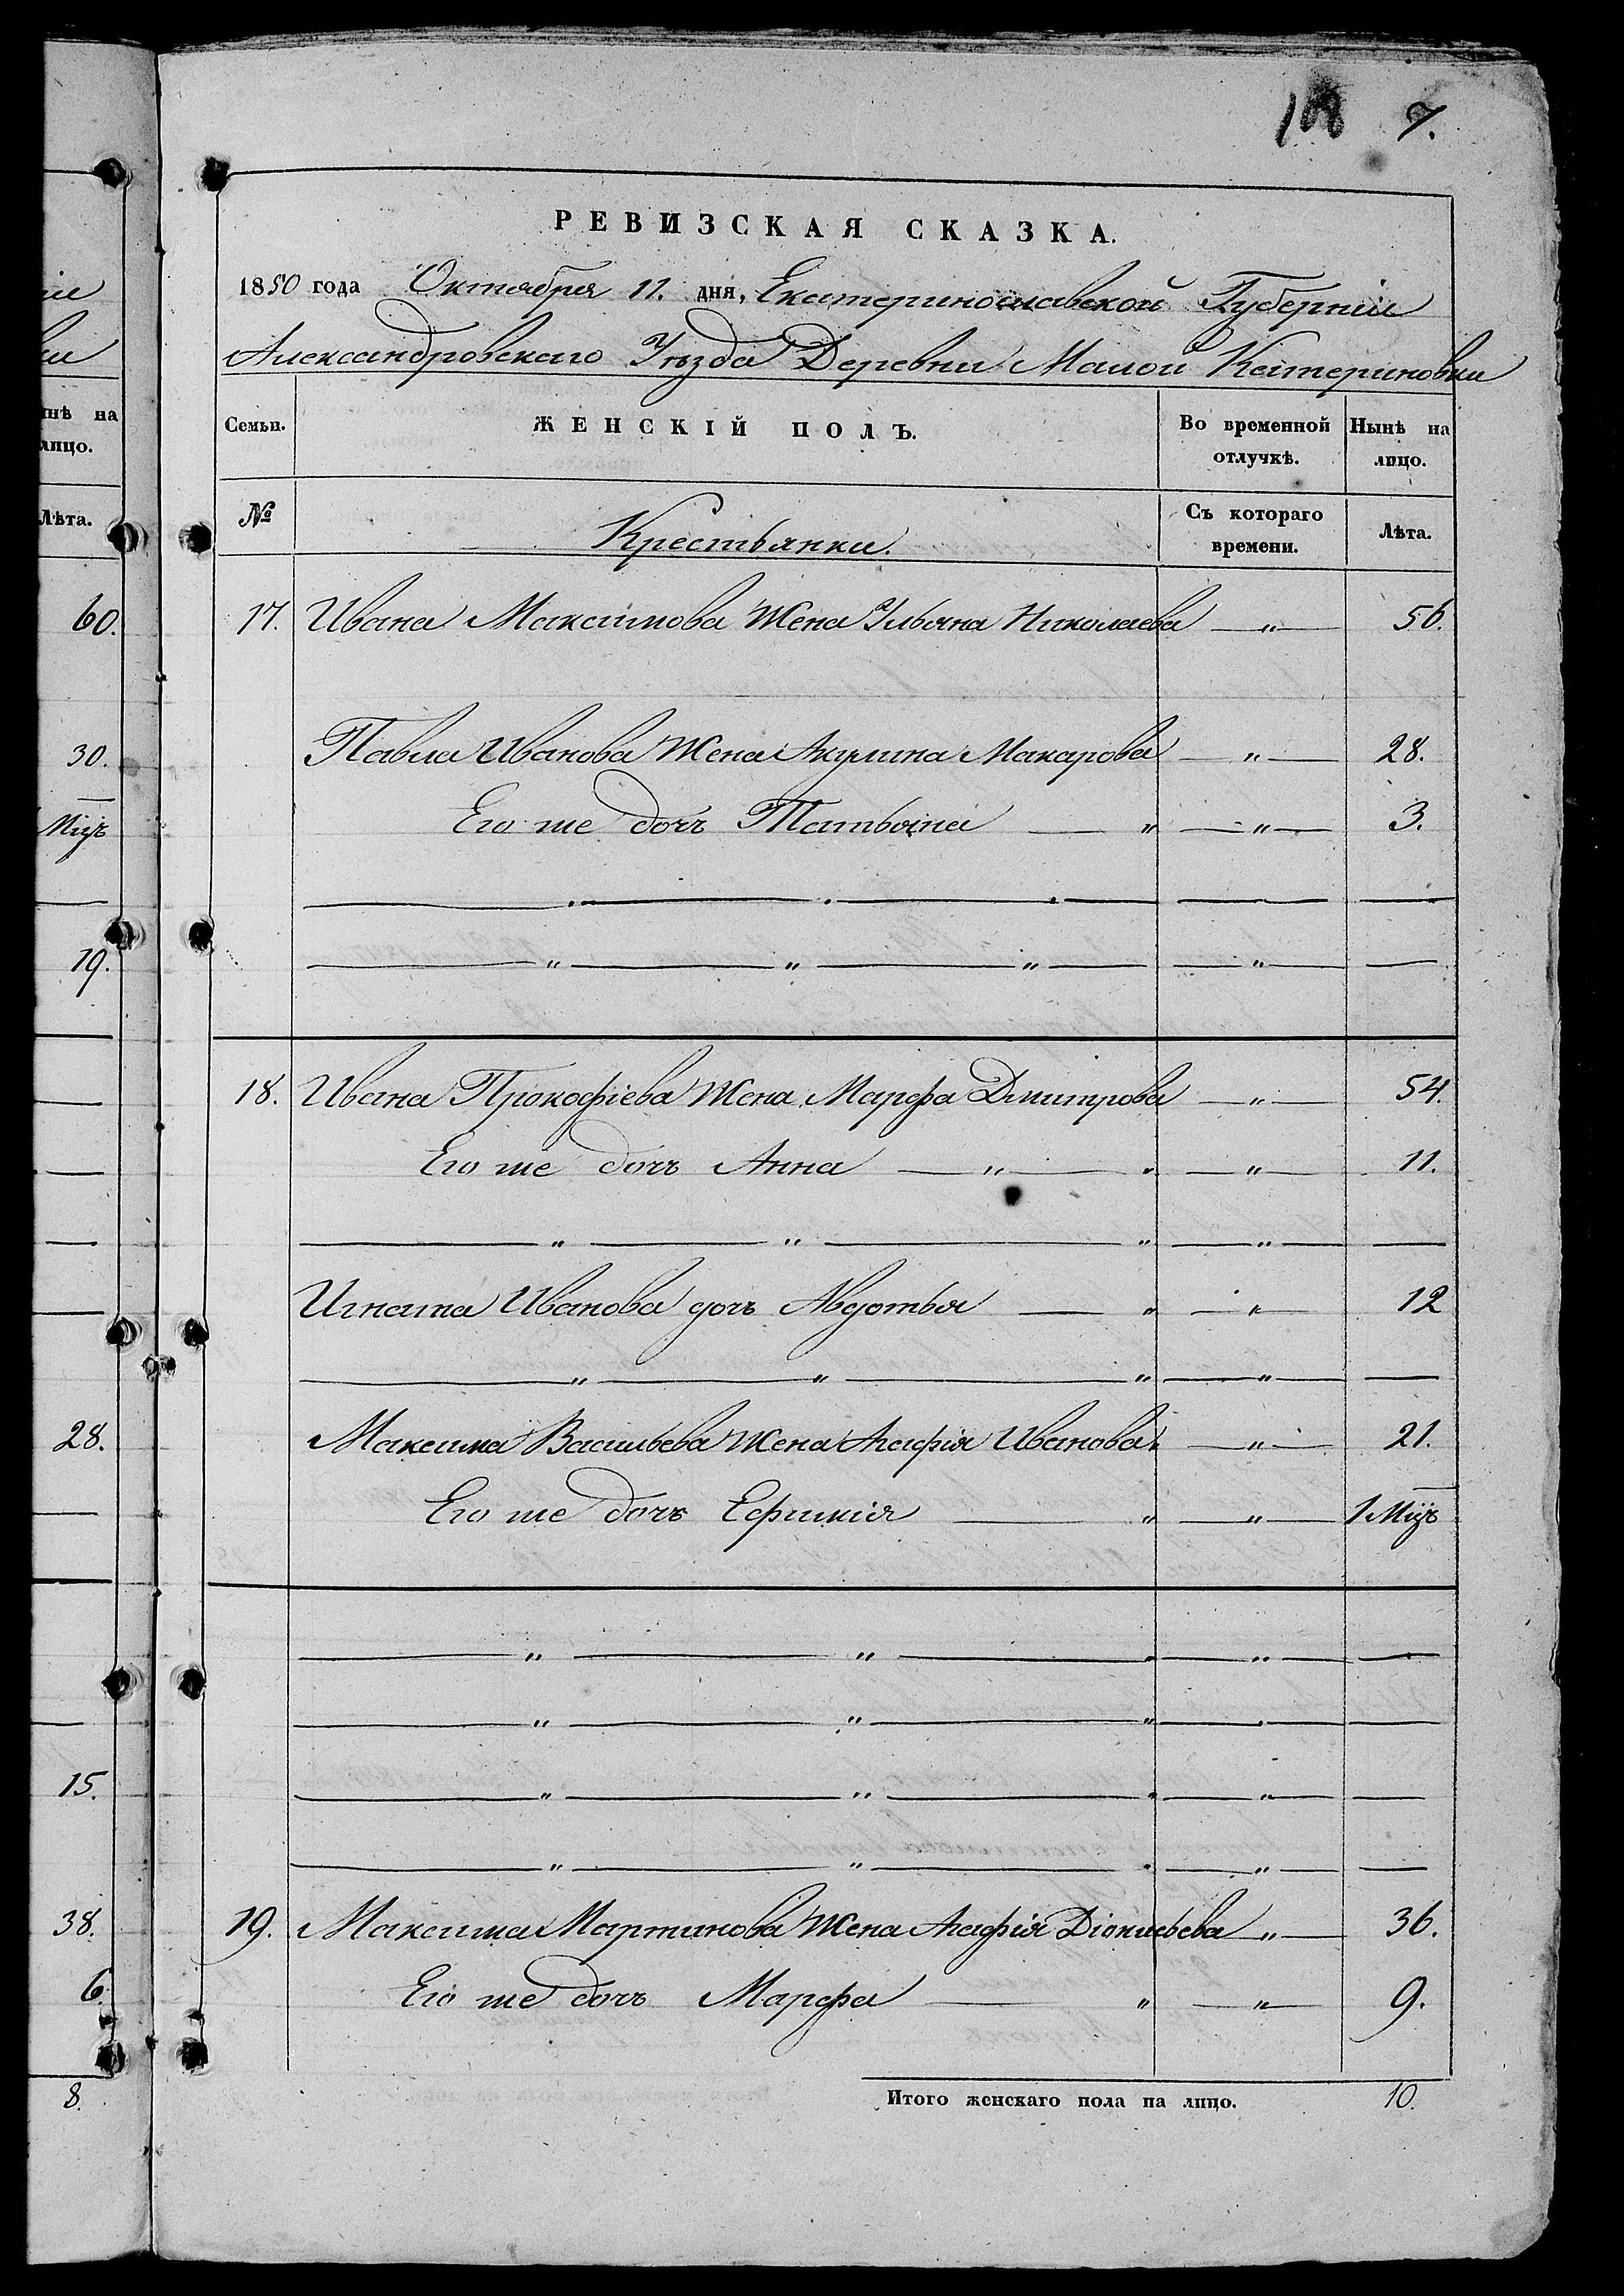 108 7.
РЕВИЗСКАЯ СКАЗКА.
1850 года Октября 11. дня, Екатеринославской Губерніи
Александровскаго Уѣзда Деревни Малой Катериновки
Семьи. ЖЕНСКІЙ ПОЛЪ. Во временной отлучкѣ. Нынѣ на лицо.
№ Крестьянки. Съ котораго времени. Лѣта.
17. Ивана Максимова Жена Ульяна Николаева — „ — 56.
Павла Иванова Жена Акулина Макарова — „ — 28.
Его же дочь Татьяна — „ — „ — 3.
18. Ивана Прокофіева Жена Марфа Дмитрова — „ — 54.
Его же дочь Анна — „ — „ — „ — 11.
Игната Иванова дочь Авдотья — „ — „ — 12
Максима Васильева Жена Агафія Иванова — „ — 21.
Его же дочь Ефимія — „ — „ — 1 Мцъ
19. Максима Мартинова Жена Агафія Діонисьева „ — 36.
Его же дочь Марфа — „ — „ — 9.
Итого женскаго пола на лицо. 10.
нѣ на
лицо.
Лѣта.
60.
30.
Мцъ
19.
28.
15.
38.
6.
8.